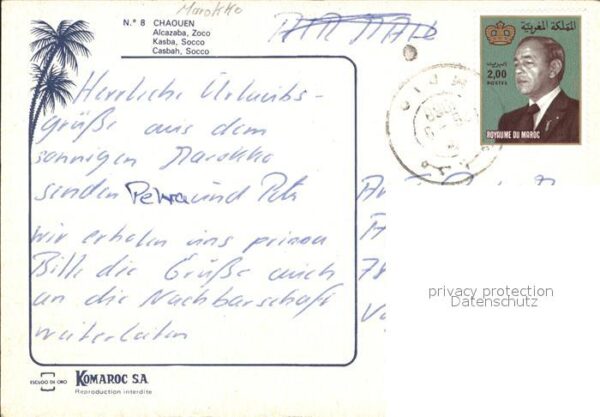 Marokko
N.° 8 CHAOUEN
Alcazaba, Zoco
Kasba, Socco
Casbah, Socco
PAR AVION
المملكة المغربية
البريد
2,00
POSTES
ROYAUME DU MAROC
Herrliche Urlaubs-
grüße aus dem
sonnigen Marokko
senden Petra und Peter
Wir erholen uns prima
Bitte die Grüße auch
an die Nachbarschaft
weiterleiten
privacy protection
Datenschutz
ESCUDO DE ORO
KOMAROC S.A.
Reproduction interdite